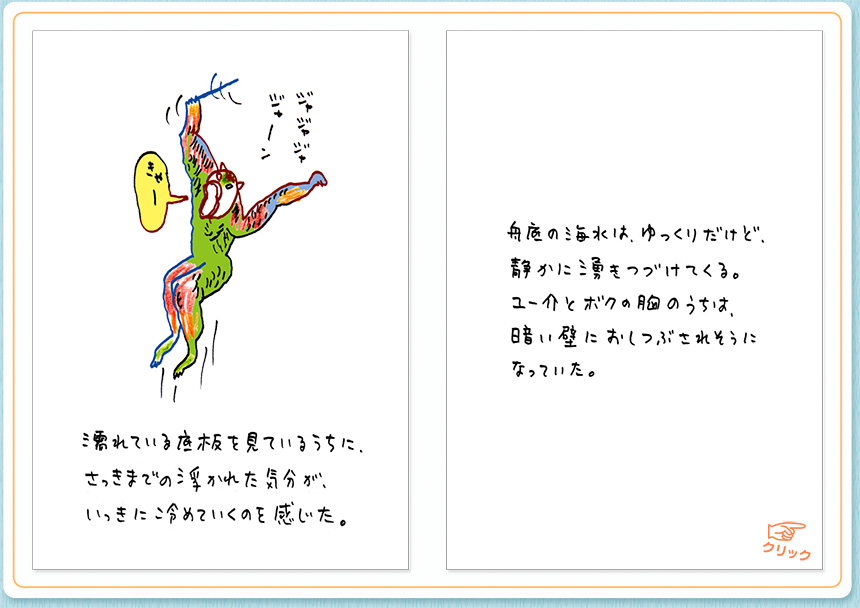 ジャジャジャ
ジャーン
きゃー
濡れている底板を見ているうちに、
さっきまでの浮かれた気分が、
いっきに冷めていくのを感じた。
舟底の海水は、ゆっくりだけど、
静かに湧きつづけてくる。
ユー介とボクの胸のうちは、
暗い壁におしつぶされそうに
なっていた。
クリック